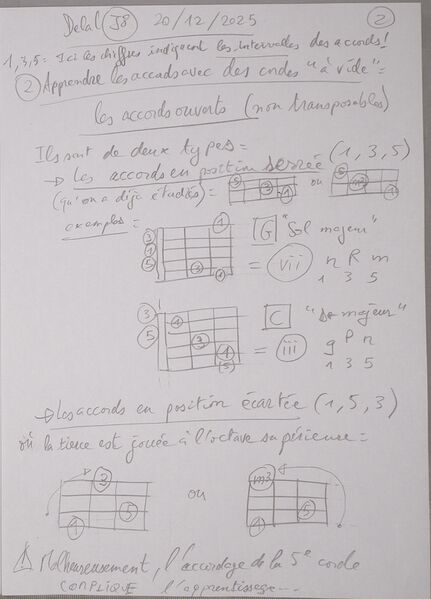 Delal J8 20/12/2025 2
1,3,5 = Ici les chiffres indiquent les intervalles des accords!
2 Apprendre les accords avec des cordes "à vide" =
les accords ouverts (non transposables)
Ils sont de deux types =
→ Les accords en position serrée (1, 3, 5)
(qu'on a déjà étudiés) = 5 3 1 ou 5 m3 1
exemples = 1
3 G "Sol majeur"
1
5 = vii n R m
3 1 1 3 5
3 1 C "Do majeur"
5 3
1 = iii g P n
(5) 1 3 5
→ Les accords en position écartée (1, 5, 3)
où la tierce est jouée à l'octave supérieure =
3 m3
5 ou 5
1 1
⚠ Malheureusement, l'accordage de la 5e corde
COMPLIQUE l'apprentissage...